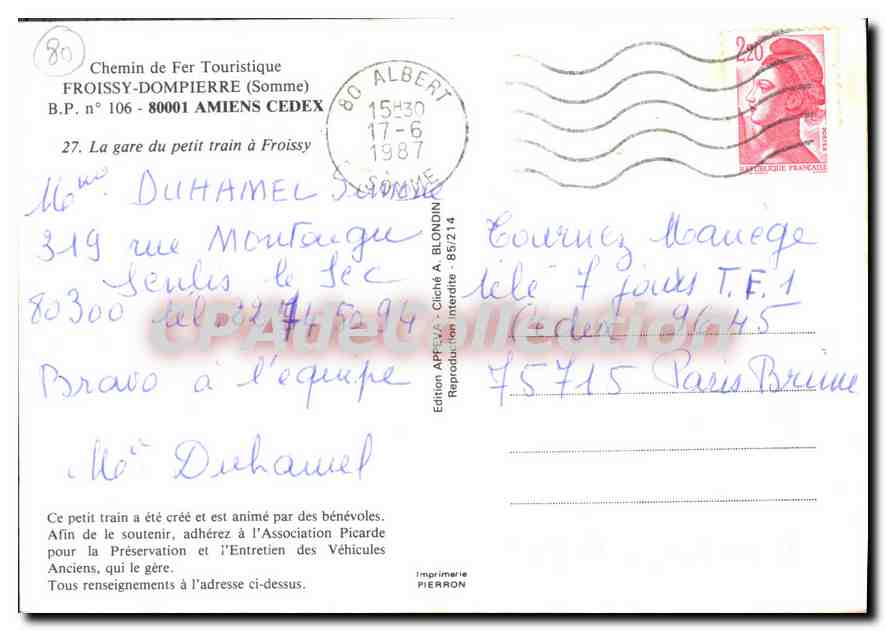 80
Chemin de Fer Touristique
FROISSY-DOMPIERRE (Somme)
B.P. n° 106 - 80001 AMIENS CEDEX
27. La gare du petit train à Froissy
80 ALBERT
15H30
17-6
1987
SOMME
2,20
POSTES
REPUBLIQUE FRANÇAISE
Mme DUHAMEL Simone
319 rue Montaigu
Senlis le Sec
80300 tél. 22
Bravo à l'équipe
Me Duhamel
Edition APPEVA - Cliché A. BLONDIN
Reproduction Interdite - 85/214
Tournez Manège
télé 7 jours T.F.1
Cedex 9645
75715 Paris Brune
CPAdeCollection
Ce petit train a été créé et est animé par des bénévoles.
Afin de le soutenir, adhérez à l'Association Picarde
pour la Préservation et l'Entretien des Véhicules
Anciens, qui le gère.
Tous renseignements à l'adresse ci-dessus.
Imprimerie
PIERRON